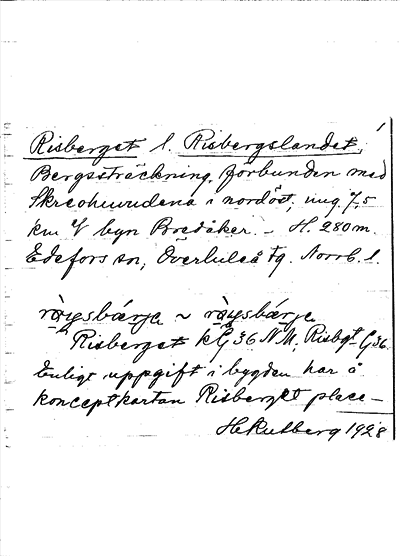 1
Risberget l. Risbergslandet,
Bergssträckning, förbunden med
i nordöst, ung. 7,5
km V byn Bredåker. – H. 280 m.
Edefors sn, Överluleå tg. Norrb. l.
~
Risberget KG 36 NM, Risbgt G 36.
Enligt uppgift i bygden har å
konceptkartan Risberget place–
1928